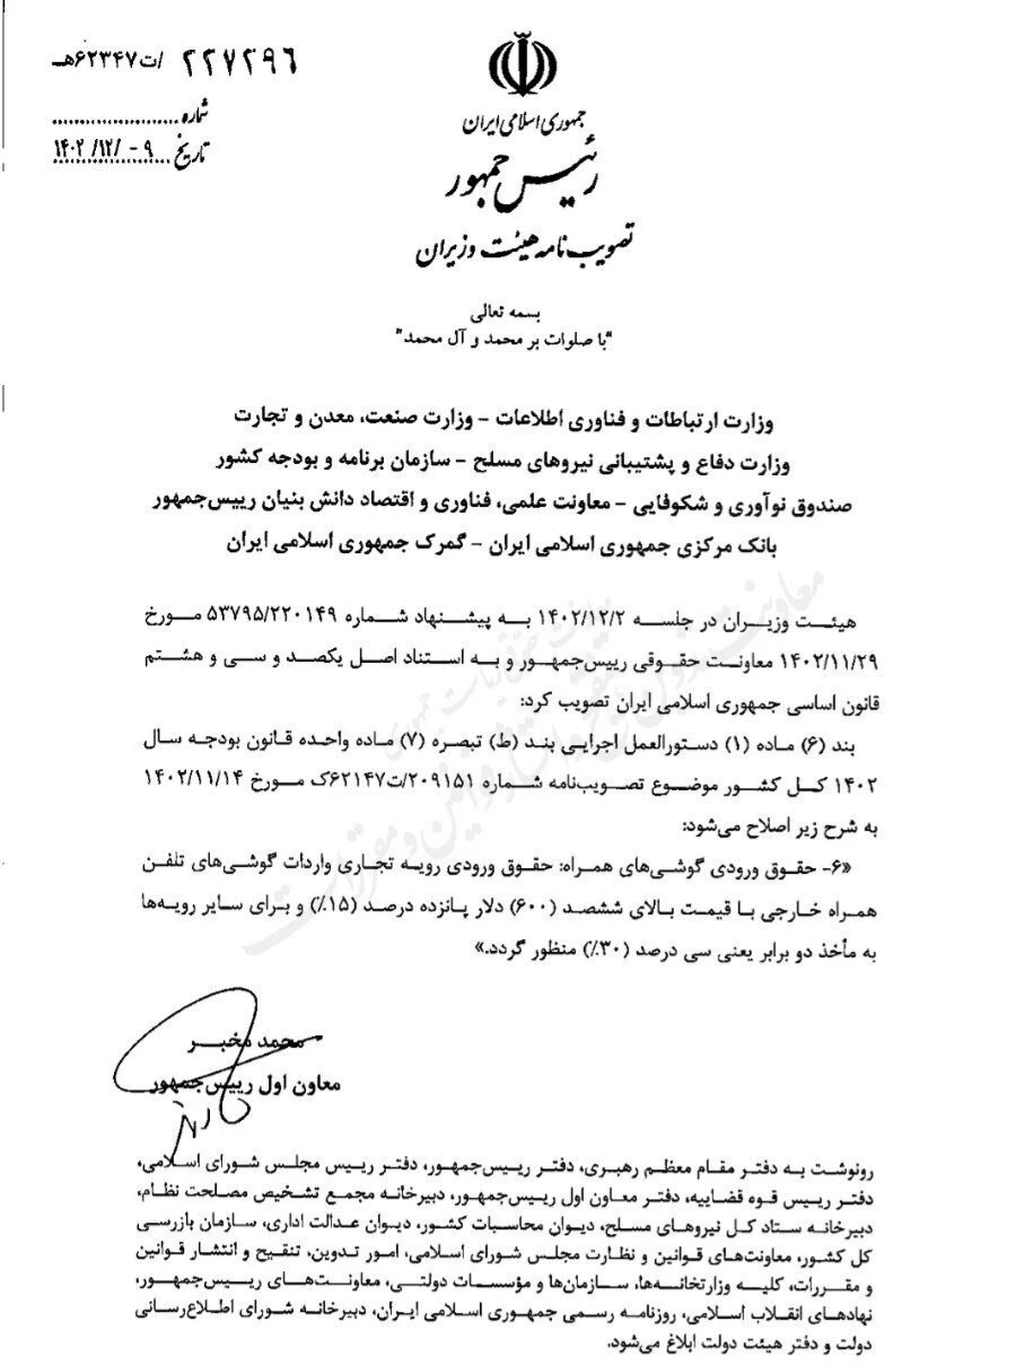 ۲۲۷۲۹۶ /ت۶۲۳۴۷هـ
شماره
تاریخ ۹ -/۱۲/ ۱۴۰۲
جمهوری اسلامی ایران
رئیس جمهور
تصویب نامه هیئت وزیران
بسمه تعالی
"با صلوات بر محمد و آل محمد"
وزارت ارتباطات و فناوری اطلاعات - وزارت صنعت، معدن و تجارت
وزارت دفاع و پشتیبانی نیروهای مسلح - سازمان برنامه و بودجه کشور
صندوق نوآوری و شکوفایی - معاونت علمی، فناوری و اقتصاد دانش بنیان رییس‌جمهور
بانک مرکزی جمهوری اسلامی ایران - گمرک جمهوری اسلامی ایران
هیئت وزیران در جلسه ۱۴۰۲/۱۲/۲ به پیشنهاد شماره ۵۳۷۹۵/۲۲۰۱۴۹ مورخ
۱۴۰۲/۱۱/۲۹ معاونت حقوقی رییس‌جمهور و به استناد اصل یکصد و سی و هشتم
قانون اساسی جمهوری اسلامی ایران تصویب کرد:
بند (۶) ماده (۱) دستورالعمل اجرایی بند (ط) تبصره (۷) ماده واحده قانون بودجه سال
۱۴۰۲ کل کشور موضوع تصویب‌نامه شماره ۲۰۹۱۵۱/ت۶۲۱۴۷ک مورخ ۱۴۰۲/۱۱/۱۴
به شرح زیر اصلاح می‌شود:
«۶- حقوق ورودی گوشی‌های همراه: حقوق ورودی رویه تجاری واردات گوشی‌های تلفن
همراه خارجی با قیمت بالای ششصد (۶۰۰) دلار پانزده درصد (۱۵٪) و برای سایر رویه‌ها
به مأخذ دو برابر یعنی سی درصد (۳۰٪) منظور گردد.»
محمد مخبر
معاون اول رییس‌جمهور
رونوشت به دفتر مقام معظم رهبری، دفتر رییس‌جمهور، دفتر رییس مجلس شورای اسلامی،
دفتر رییس قوه قضاییه، دفتر معاون اول رییس‌جمهور، دبیرخانه مجمع تشخیص مصلحت نظام،
دبیرخانه ستاد کل نیروهای مسلح، دیوان محاسبات کشور، دیوان عدالت اداری، سازمان بازرسی
کل کشور، معاونت‌های قوانین و نظارت مجلس شورای اسلامی، امور تدوین، تنقیح و انتشار قوانین
و مقررات، کلیه وزارتخانه‌ها، سازمان‌ها و مؤسسات دولتی، معاونت‌های رییس‌جمهور،
نهادهای انقلاب اسلامی، روزنامه رسمی جمهوری اسلامی ایران، دبیرخانه شورای اطلاع‌رسانی
دولت و دفتر هیئت دولت ابلاغ می‌شود.